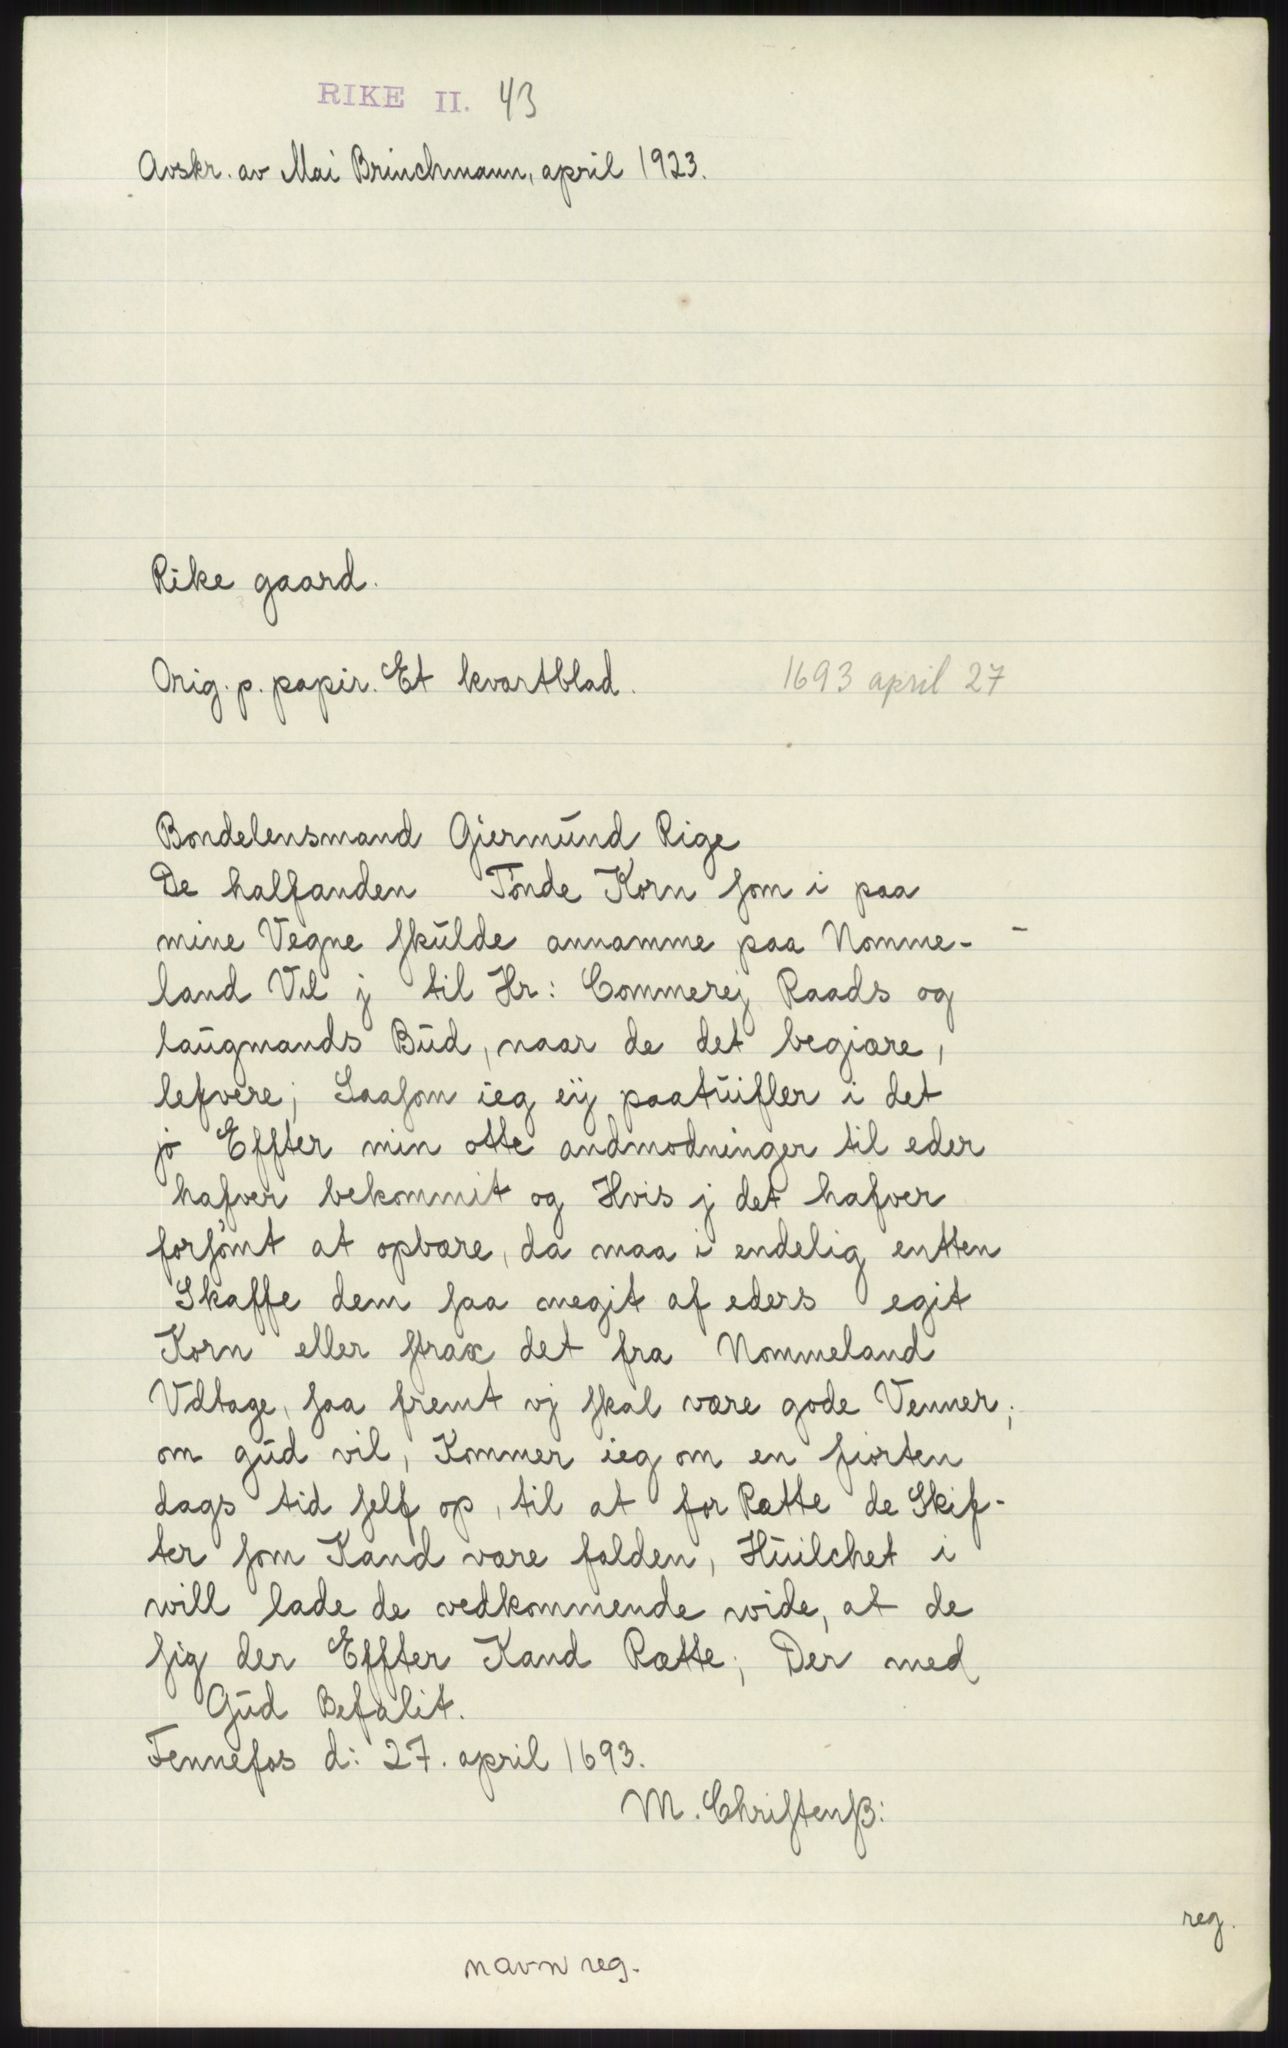 RIKE II. 43
Avskr. av Mai Brinchmann, april 1923.
Rike gaard.
Orig. p. papir. Et kvartblad. 1693 april 27
Bondelensmand Gjermŭnd Rige
De halfanden Tønde Korn ſom i paa
mine Vegne ſkŭlde annamme paa Nomme-
land Vil j til Hr: Commerej Raads og
laŭgmands Bŭd, naar de det begiære,
lefvere; Saaſom ieg eÿ paatŭifler i det
jo Effter min otte andmodninger til eder
hafver bekommit og Hvis j det hafver
forſømt at opbære, da maa i endelig entten
Skaffe dem ſaa megit af eders egit
Korn eller ſtrax det fra Nommeland
Vdtage, ſaa fremt vj ſkal være gode Venner;
om gŭd vil, Kommer ieg om en fiorten
dags tid ſelf op, til at for Rætte de Skif-
ter ſom Kand være falden, Hŭilchet i
will lade de vedkommende wide, at de
ſig der Effter Kand Rætte; Der med
Gŭd Befalit.
Fennefos d: 27. april 1693.
M. Chriſtenſß:
reg.
navn reg.